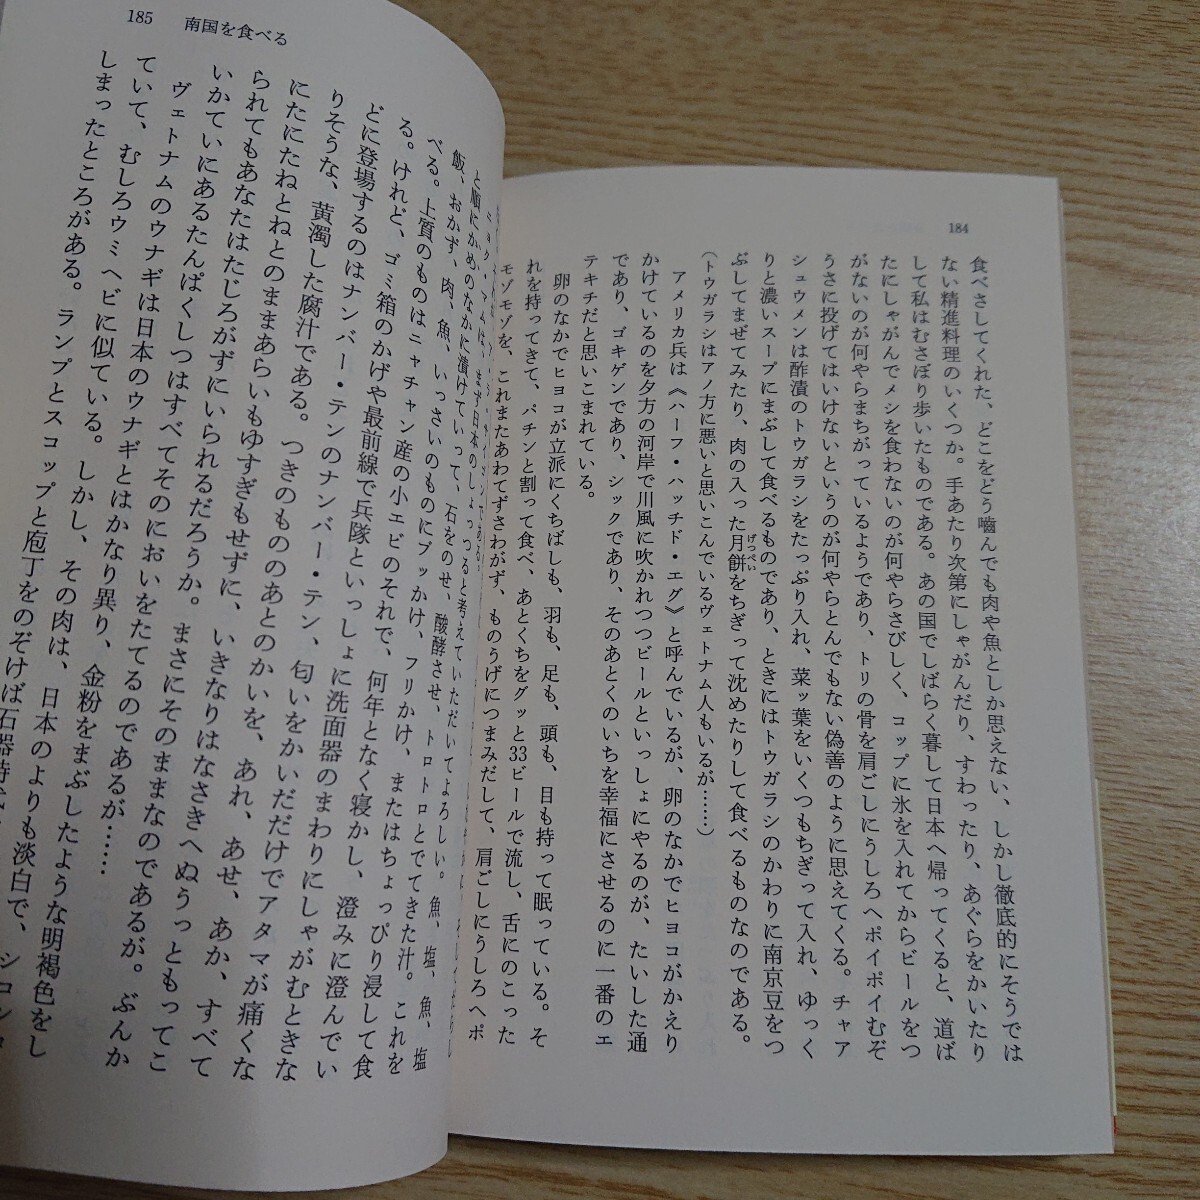 184
食べさしてくれた、どこをどう嚙んでも肉や魚としか思えない、しかし徹底的にそうでは
ない精進料理のいくつか。手あたり次第にしゃがんだり、すわったり、あぐらをかいたり
して私はむさぼり歩いたものである。あの国でしばらく暮して日本へ帰ってくると、道ば
たにしゃがんでメシを食わないのが何やらさびしく、コップに氷を入れてからビールをつ
がないのが何やらまちがっているようであり、トリの骨を肩ごしにうしろへポイポイむぞ
うさに投げてはいけないというのが何やらとんでもない偽善のように思えてくる。チャア
シュウメンは酢漬のトウガラシをたっぷり入れ、菜ッ葉をいくつもちぎって入れ、ゆっく
りと濃いスープにまぶして食べるものであり、ときにはトウガラシのかわりに南京豆をつ
ぶしてまぜてみたり、肉の入った月餅をちぎって沈めたりして食べるものなのである。
げっぺい
(トウガラシはアノ方に悪いと思いこんでいるヴェトナム人もいるが……)
アメリカ兵は《ハーフ・ハッチド・エグ》と呼んでいるが、卵のなかでヒヨコがかえり
かけているのを夕方の河岸で川風に吹かれつつビールといっしょにやるのが、たいした通
であり、ゴキゲンであり、シックであり、そのあとくのいちを幸福にさせるのに一番のエ
テキチだと思いこまれている。
卵のなかでヒヨコが立派にくちばしも、羽も、足も、頭も、目も持って眠っている。そ
れを持ってきて、パチンと割って食べ、あとくちをグッと33ビールで流し、舌にのこった
モゾモゾを、これまたあわてずさわがず、ものうげにつまみだして、肩ごしにうしろへポ
185 南国を食べる
ニョク・マムは、まず日本のしょっつると考えていただいてよろしい。魚、塩、魚、塩
と順にかめのなかに漬けていって、石をのせ、醗酵させ、トロトロとでてきた汁。これを
飯、おかず、肉、魚、いっさいのものにブッかけ、フリかけ、またはちょっぴり浸して食
べる。上質のものはニャチャン産の小エビのそれで、何年となく寝かし、澄みに澄んでい
る。けれど、ゴミ箱のかげや最前線で兵隊といっしょに洗面器のまわりにしゃがむときな
どに登場するのはナンバー・テンのナンバー・テン、匂いをかいだだけでアタマが痛くな
りそうな、黄濁した腐汁である。つきのもののあとのかいを、あれ、あせ、あか、すべて
にたにたねとねとのままあらいもゆすぎもせずに、いきなりはなさきへぬうっともってこ
られてもあなたはたじろがずにいられるだろうか。まさにそのままなのであるが。ぶんか
いかていにあるたんぱくしつはすべてそのにおいをたてるのであるが……
ヴェトナムのウナギは日本のウナギとはかなり異り、金粉をまぶしたような明褐色をし
ていて、むしろウミヘビに似ている。しかし、その肉は、日本のよりも淡白で、
しまったところがある。ランプとスコップと庖丁をのぞけば石器時